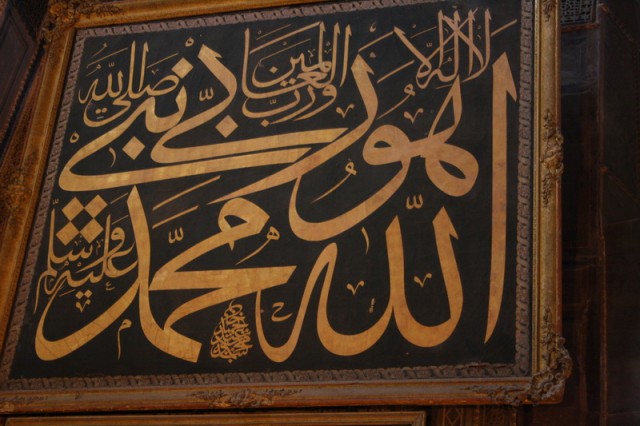 لا اله الا
هو
الله ربي
ورب العالمين
محمد نبيي
صلى الله
عليه وسلم